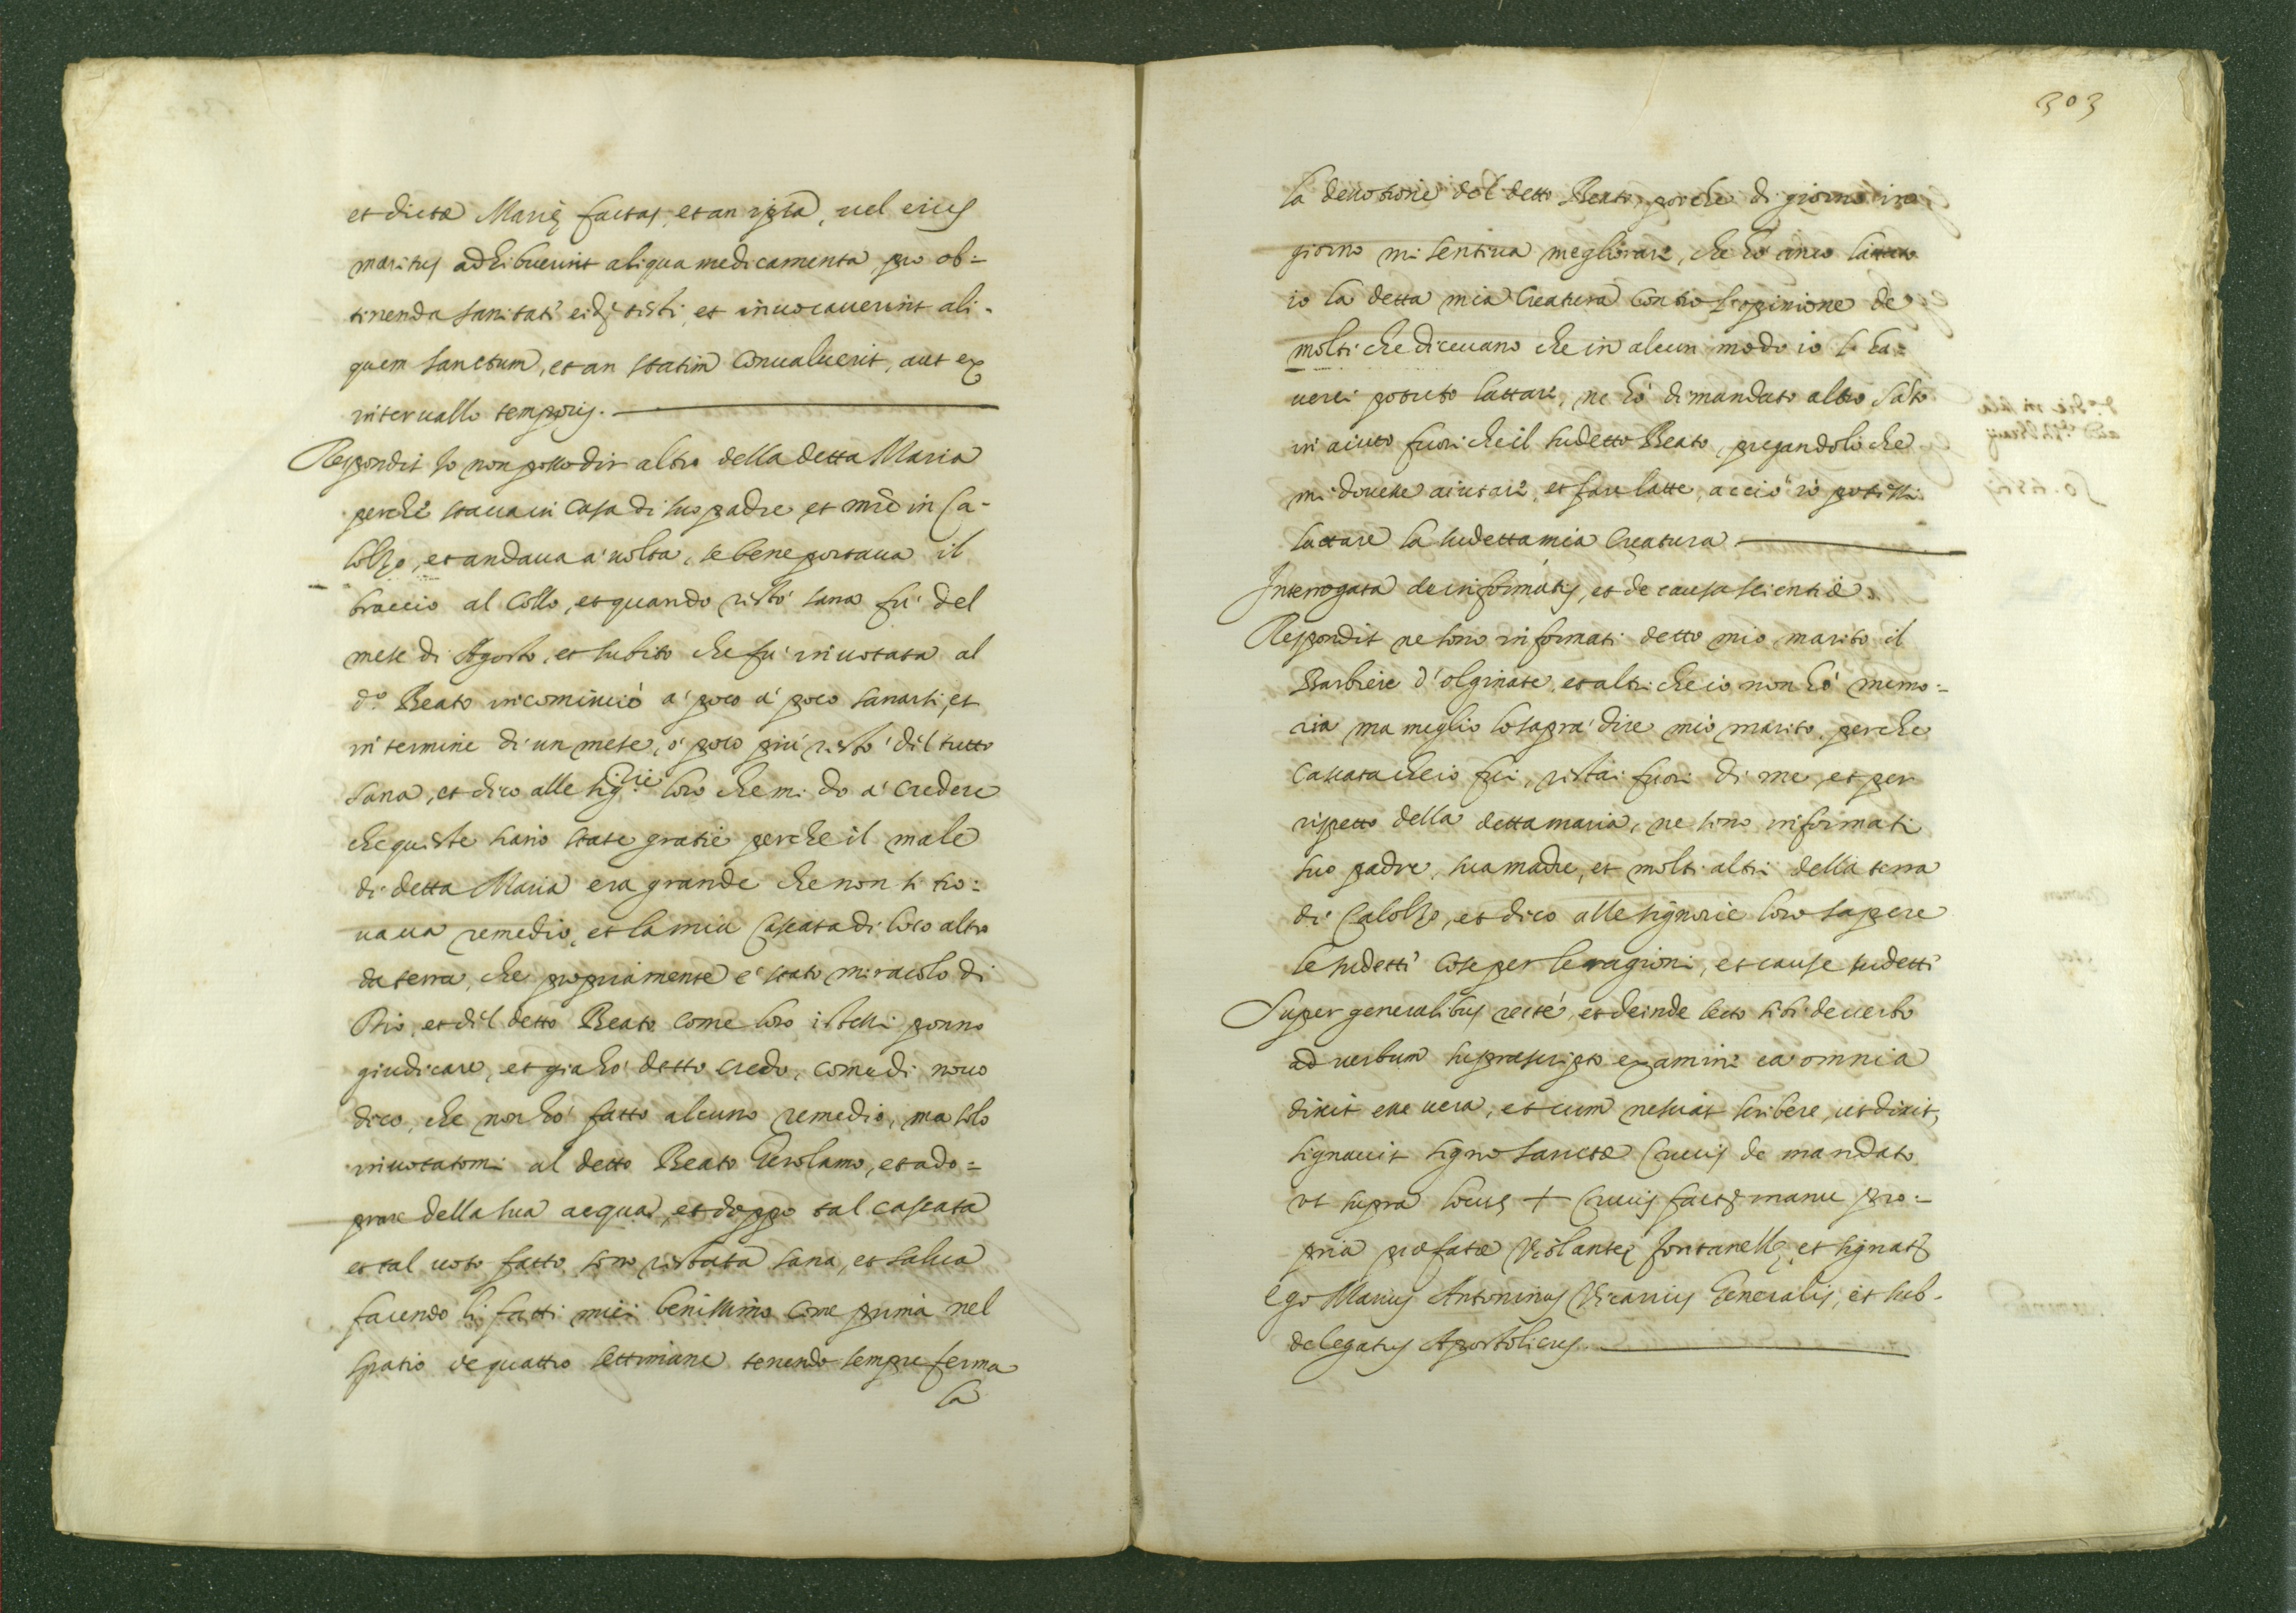 et dictæ Marię factas, et an ipsa, uel eius
maritus adhibuerint aliqua medicamenta, pro ob=
tinenda sanitate eidē testi, et inuocauerint ali-
quem sanctum, et an statim conualuerit, aut ex
interuallo temporis.
Respondit Io non posso dir altro della detta Maria
perche staua in casa di suo padre et mrē in Ca-
lolzo, et andaua a' uolta, se bene portaua il
braccio al collo, et quando restò sana fu' del
mese di Agosto, et subito che fu' inuotata al
d.º Beato incominciò a' poco a' poco sanarsi, et
in termine di un mese, o' poco più restò del tutto
sana, et dico alle Sig.rie loro che mi do a' credere
che queste siano state gratie perche il male
di detta Maria era grande che non si tro=
uaua remedio, et la mia cascata di loco alto
da terra, che propriamente e' stato miracolo di
Dio, et del detto Beato come loro istessi ponno
giudicare, et gia ho' detto credo, come di nouo
dico, che non ho' fatto alcuno remedio, ma solo
inuotatomi al detto Beato Gerolamo, et ado=
prare della sua acqua, et doppo tal cascata
et tal uoto fatto sono restata sana, et salua
facendo li fatti miei benissimo come prima nel
spatio de quattro settimane tenendo sempre ferma
la
303
la deuotione del detto Beato, perche di giorno in
giorno mi sentiua megliorare, che ho anco lattato
io la detta mia Creatura contro l'opinione de
molti che diceuano che in alcun modo io l'ha=
uerei potuto lattare, ne ho' dimandato altro Sāto
in aiuto fuori che il sudetto Beato, pregandolo che
mi douesse aiutare, et fare latte, acciò io potessi
lattare la sudetta mia Creatura
Interrogata de informatis, et de causa scientiæ
Respondit ne sono informati detto mio marito il
Barbiere d'olginate, et altri che io non ho' memo=
ria ma meglio lo saprà dire mio marito, perche
cascata che io fui, restai fuori di me, et per
rispetto della detta maria, ne sono informati
suo padre, sua madre, et molti altri della terra
di Calolzo, et dico alle signorie loro sapere
le sudetti cose per le ragioni, et cause sudetti
Super generalibus recte', et deinde lecto sibi de uerbo
ad uerbum suprascripto examine ea omnia
dixit esse uera, et cum nesciat scribere, ut dixit,
signauit signo sanctæ Crucis de mandato
ut supra locus + Crucis factę manu pro=
pria præfatæ Violantę fontanellę, et signatę
Ego Marius Antoninus Vicarius Generalis, et sub-
delegatus Apostolicus